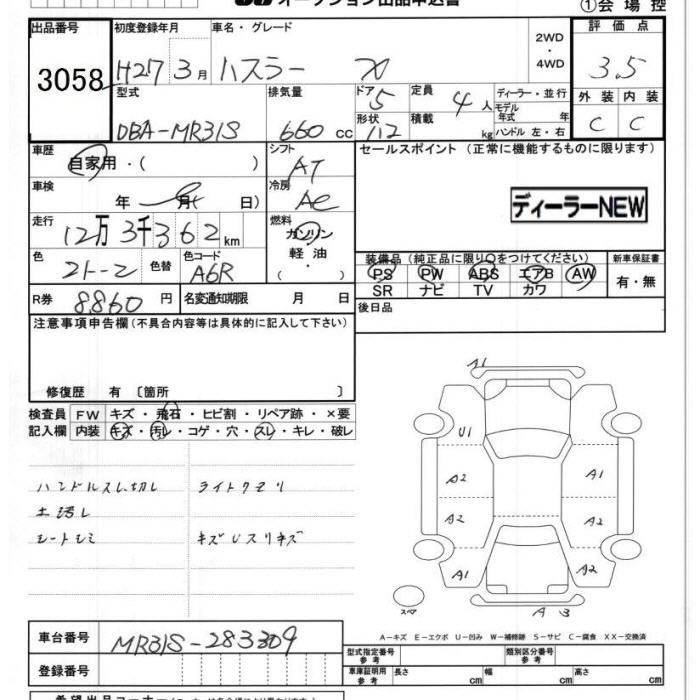 オークション出品申込書
①会場控
出品番号
3058
初度登録年月
H27年3月
車名・グレード
ハスラー X
2WD・4WD
評価点
3.5
型式
DBA-MR31S
排気量
660 cc
ドア 5
形状 112
定員 4人
積載 kg
ディーラー・並行
モデル年式 年
ハンドル 左・右
外装 内装
C C
車歴
自家用・( )
シフト
AT
セールスポイント(正常に機能するものに限ります)
車検
年 月( 日)
冷房
AC
ディーラーNEW
走行
12万3千362km
燃料
ガソリン
軽油
・
色
2トーン
色替
色コード
A6R
装備品(純正品に限り○をつけてください)
新車保証書
PS PW ABS エアB AW
SR ナビ TV カワ
有・無
R券
8860円
名変通知期限 月 日
後日品
注意事項申告欄(不具合内容等は具体的に記入して下さい)
修復歴 有 〔箇所 〕
検査員記入欄
FW キズ・飛石・ヒビ割・リペア跡・×要
内装 キズ・汚レ・コゲ・穴・スレ・キレ・破レ
ハンドルスレ、切レ
ライトクモリ
土汚レ
シートシミ
キズUスリキズ
A1
U1
A2
A1
A2
A2
A1
A2
スペア
A B
A−キズ E−エクボ U−凹み W−補修跡 S−サビ C−腐食 XX−交換済
車台番号
MR31S-283309
登録番号
型式指定番号 参考
類別区分番号 参考
車庫証明用 参考
長さ cm
幅 cm
高さ cm